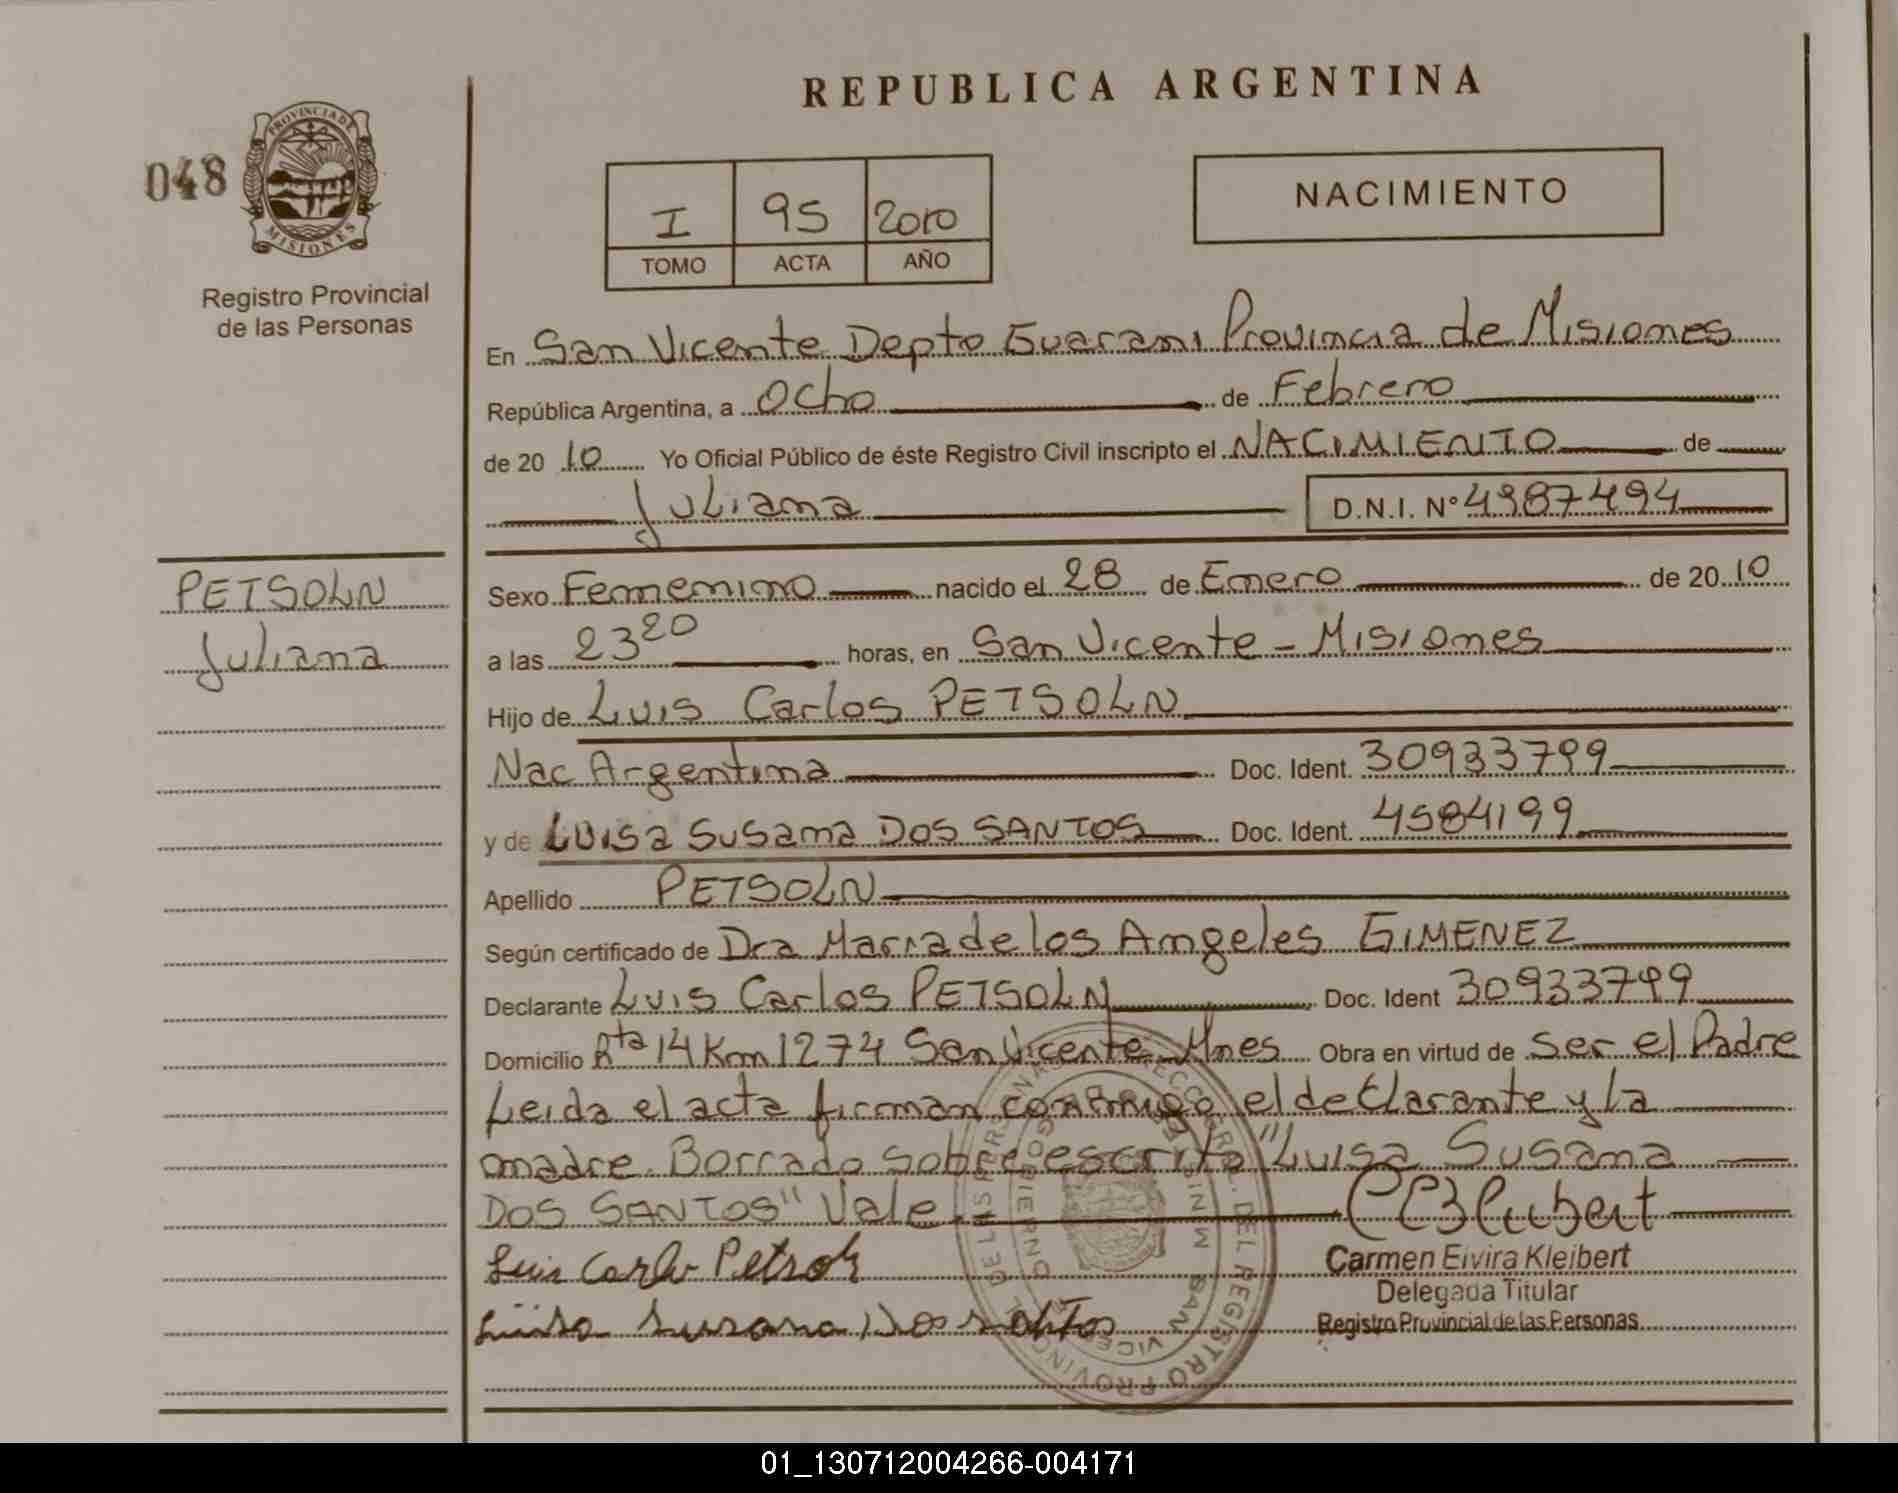 REPUBLICA ARGENTINA
048
PROVINCIA DE
MISIONES
Registro Provincial
de las Personas
I 95 2010
TOMO ACTA AÑO
NACIMIENTO
En San Vicente Depto Guarani Provincia de Misiones
República Argentina, a Ocho de Febrero
de 20 10 Yo Oficial Público de éste Registro Civil inscripto el NACIMIENTO de
Juliana D.N.I. Nº 4987494
PETSOLN
Juliana
Sexo Femenino nacido el 28 de Enero de 20 10
a las 23 20 horas, en San Vicente - Misiones
Hijo de Luis Carlos PETSOLN
Nac Argentina Doc. Ident. 30933799
y de Luisa Susana DOS SANTOS Doc. Ident. 4584199
Apellido PETSOLN
Según certificado de Dra Maria de los Angeles GIMENEZ
Declarante Luis Carlos PETSOLN Doc. Ident 30933799
Domicilio Rta 14 Km 1274 San Vicente Mnes Obra en virtud de Ser el Padre
Leida el acta firman conmigo el declarante y la
madre. Borrado sobre escrito "Luisa Susana
DOS SANTOS" Vale
Luis Carlos
Luisa Susana Dos Santos
Carmen Elvira Kleibert
Delegada Titular
Registro Provincial de las Personas
01_130712004266-004171